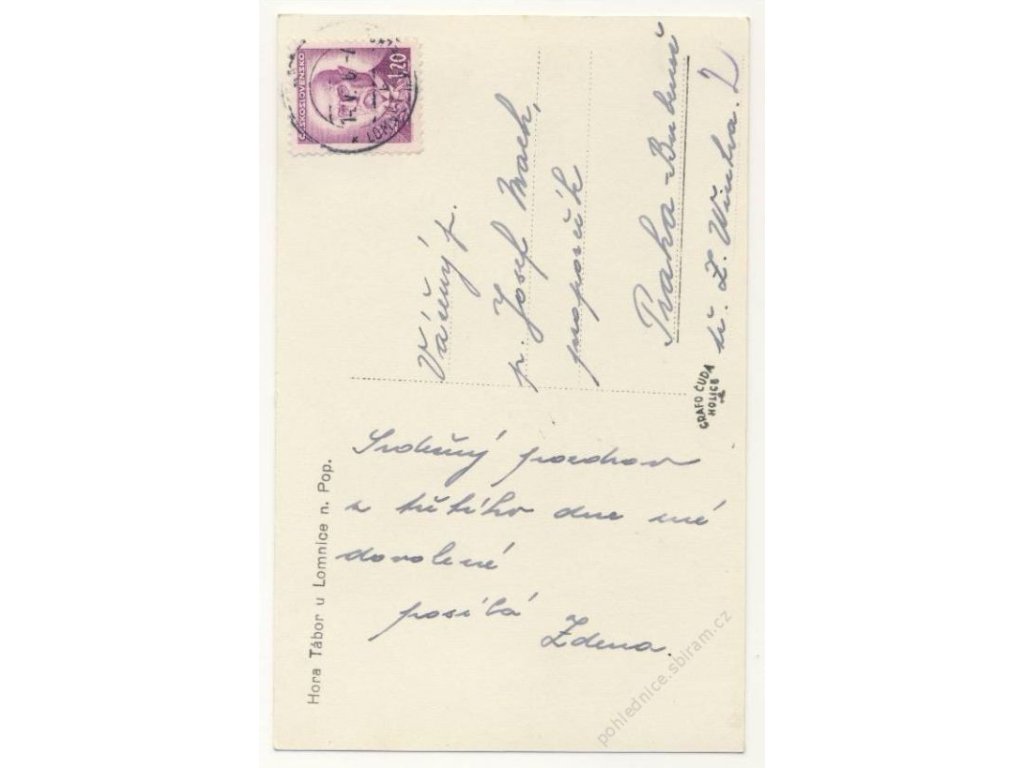 ČESKOSLOVENSKO
1.20
Vážený p.
p. Josef
Praha-Bubeneč
tř. Z. Wintra. 2
GRAFO ČUDA
HOLICE
Srdečný pozdrav
z třetího dne mé
dovolené
posílá
Zdena.
Hora Tábor u Lomnice n. Pop.
pohlednice.sbiram.cz